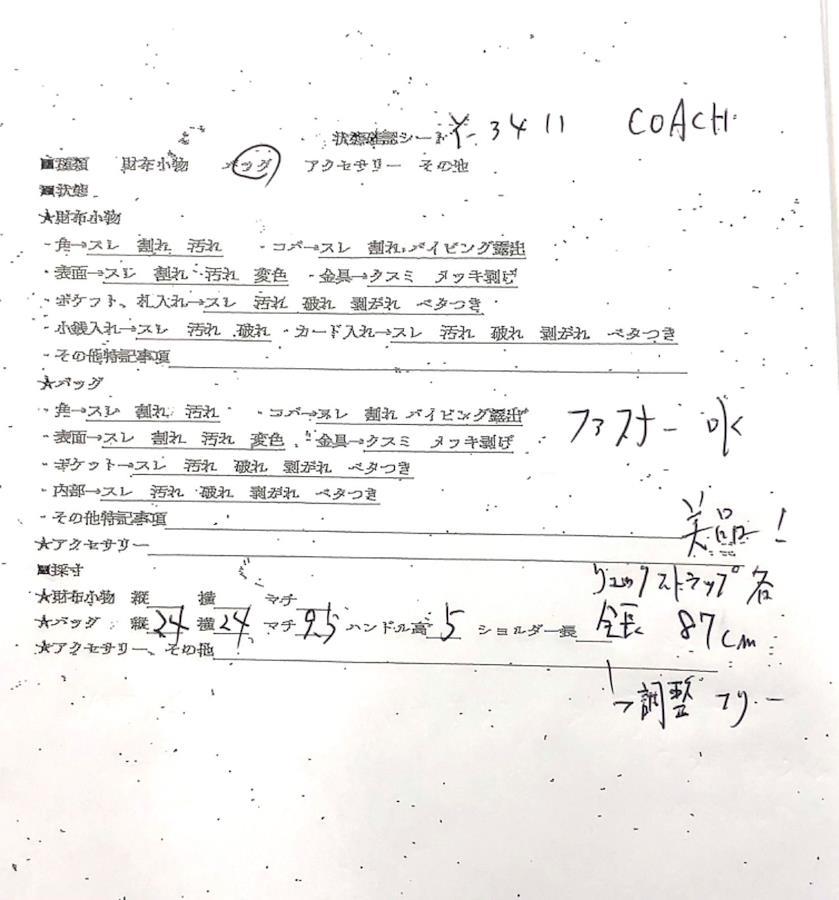 状態確認シート Y-3411 COACH
■種類 財布小物 バッグ アクセサリー その他
■状態
★財布小物
・角→スレ 割れ 汚れ ・コバ→スレ 割れ パイピング露出
・表面→スレ 割れ 汚れ 変色 ・金具→クスミ メッキ剥げ
・ポケット、札入れ→スレ 汚れ 破れ 剥がれ ベタつき
・小銭入れ→スレ 汚れ 破れ ・カード入れ→スレ 汚れ 破れ 剥がれ ベタつき
・その他特記事項
★バッグ
・角→スレ 割れ 汚れ ・コバ→スレ 割れ パイピング露出
・表面→スレ 割れ 汚れ 変色 ・金具→クスミ メッキ剥げ
ファスナー
・ポケット→スレ 汚れ 破れ 剥がれ ベタつき
・内部→スレ 汚れ 破れ 剥がれ ベタつき
・その他特記事項 美品!
★アクセサリー
■採寸
リュックストラップ 各
★財布小物 縦 横 マチ
★バッグ 縦24 横24 マチ9.5 ハンドル高5 ショルダー長 全長 87cm
★アクセサリー、その他
→調整フリー